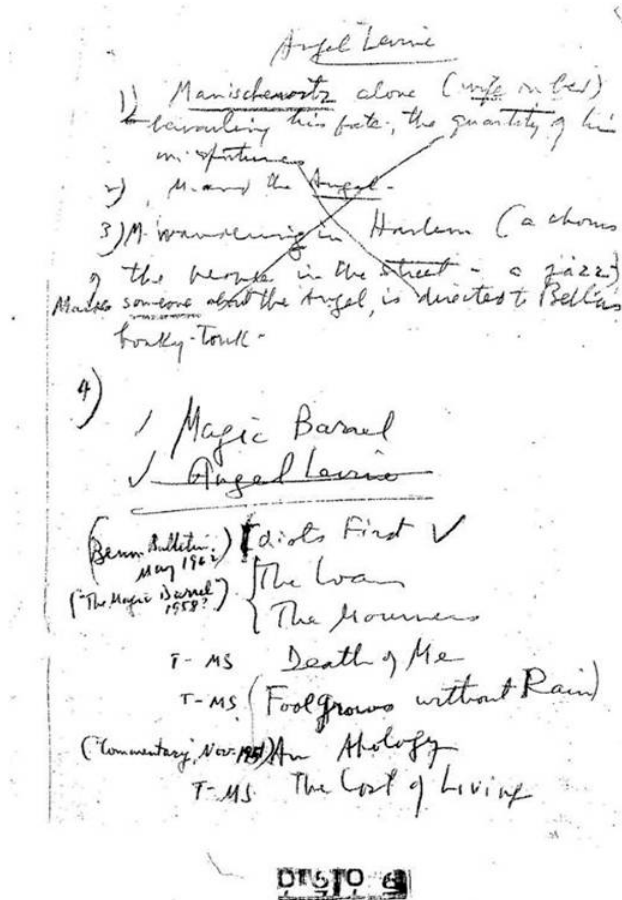 Angel Levine
1) Manischewitz alone (wife in bed)
bewailing his fate, the quantity of his
misfortunes
2) M. and the Angel -
3) M. wandering in Harlem (a chorus
of the people in the street - a jazz)
someone about the Angel, is directed to Bella's
honky-tonk -
4)
✓ Magic Barrel
✓ Angel Levine
(Benn. Bulletin May 1962) Idiots First ✓
("The Magic Barrel" 1958?) { The Loan
The Mourners
T-MS Death of Me
T-MS (Fool grows without Rain)
("Commentary", Nov. 1951) An Apology
T-MS The Cost of Living